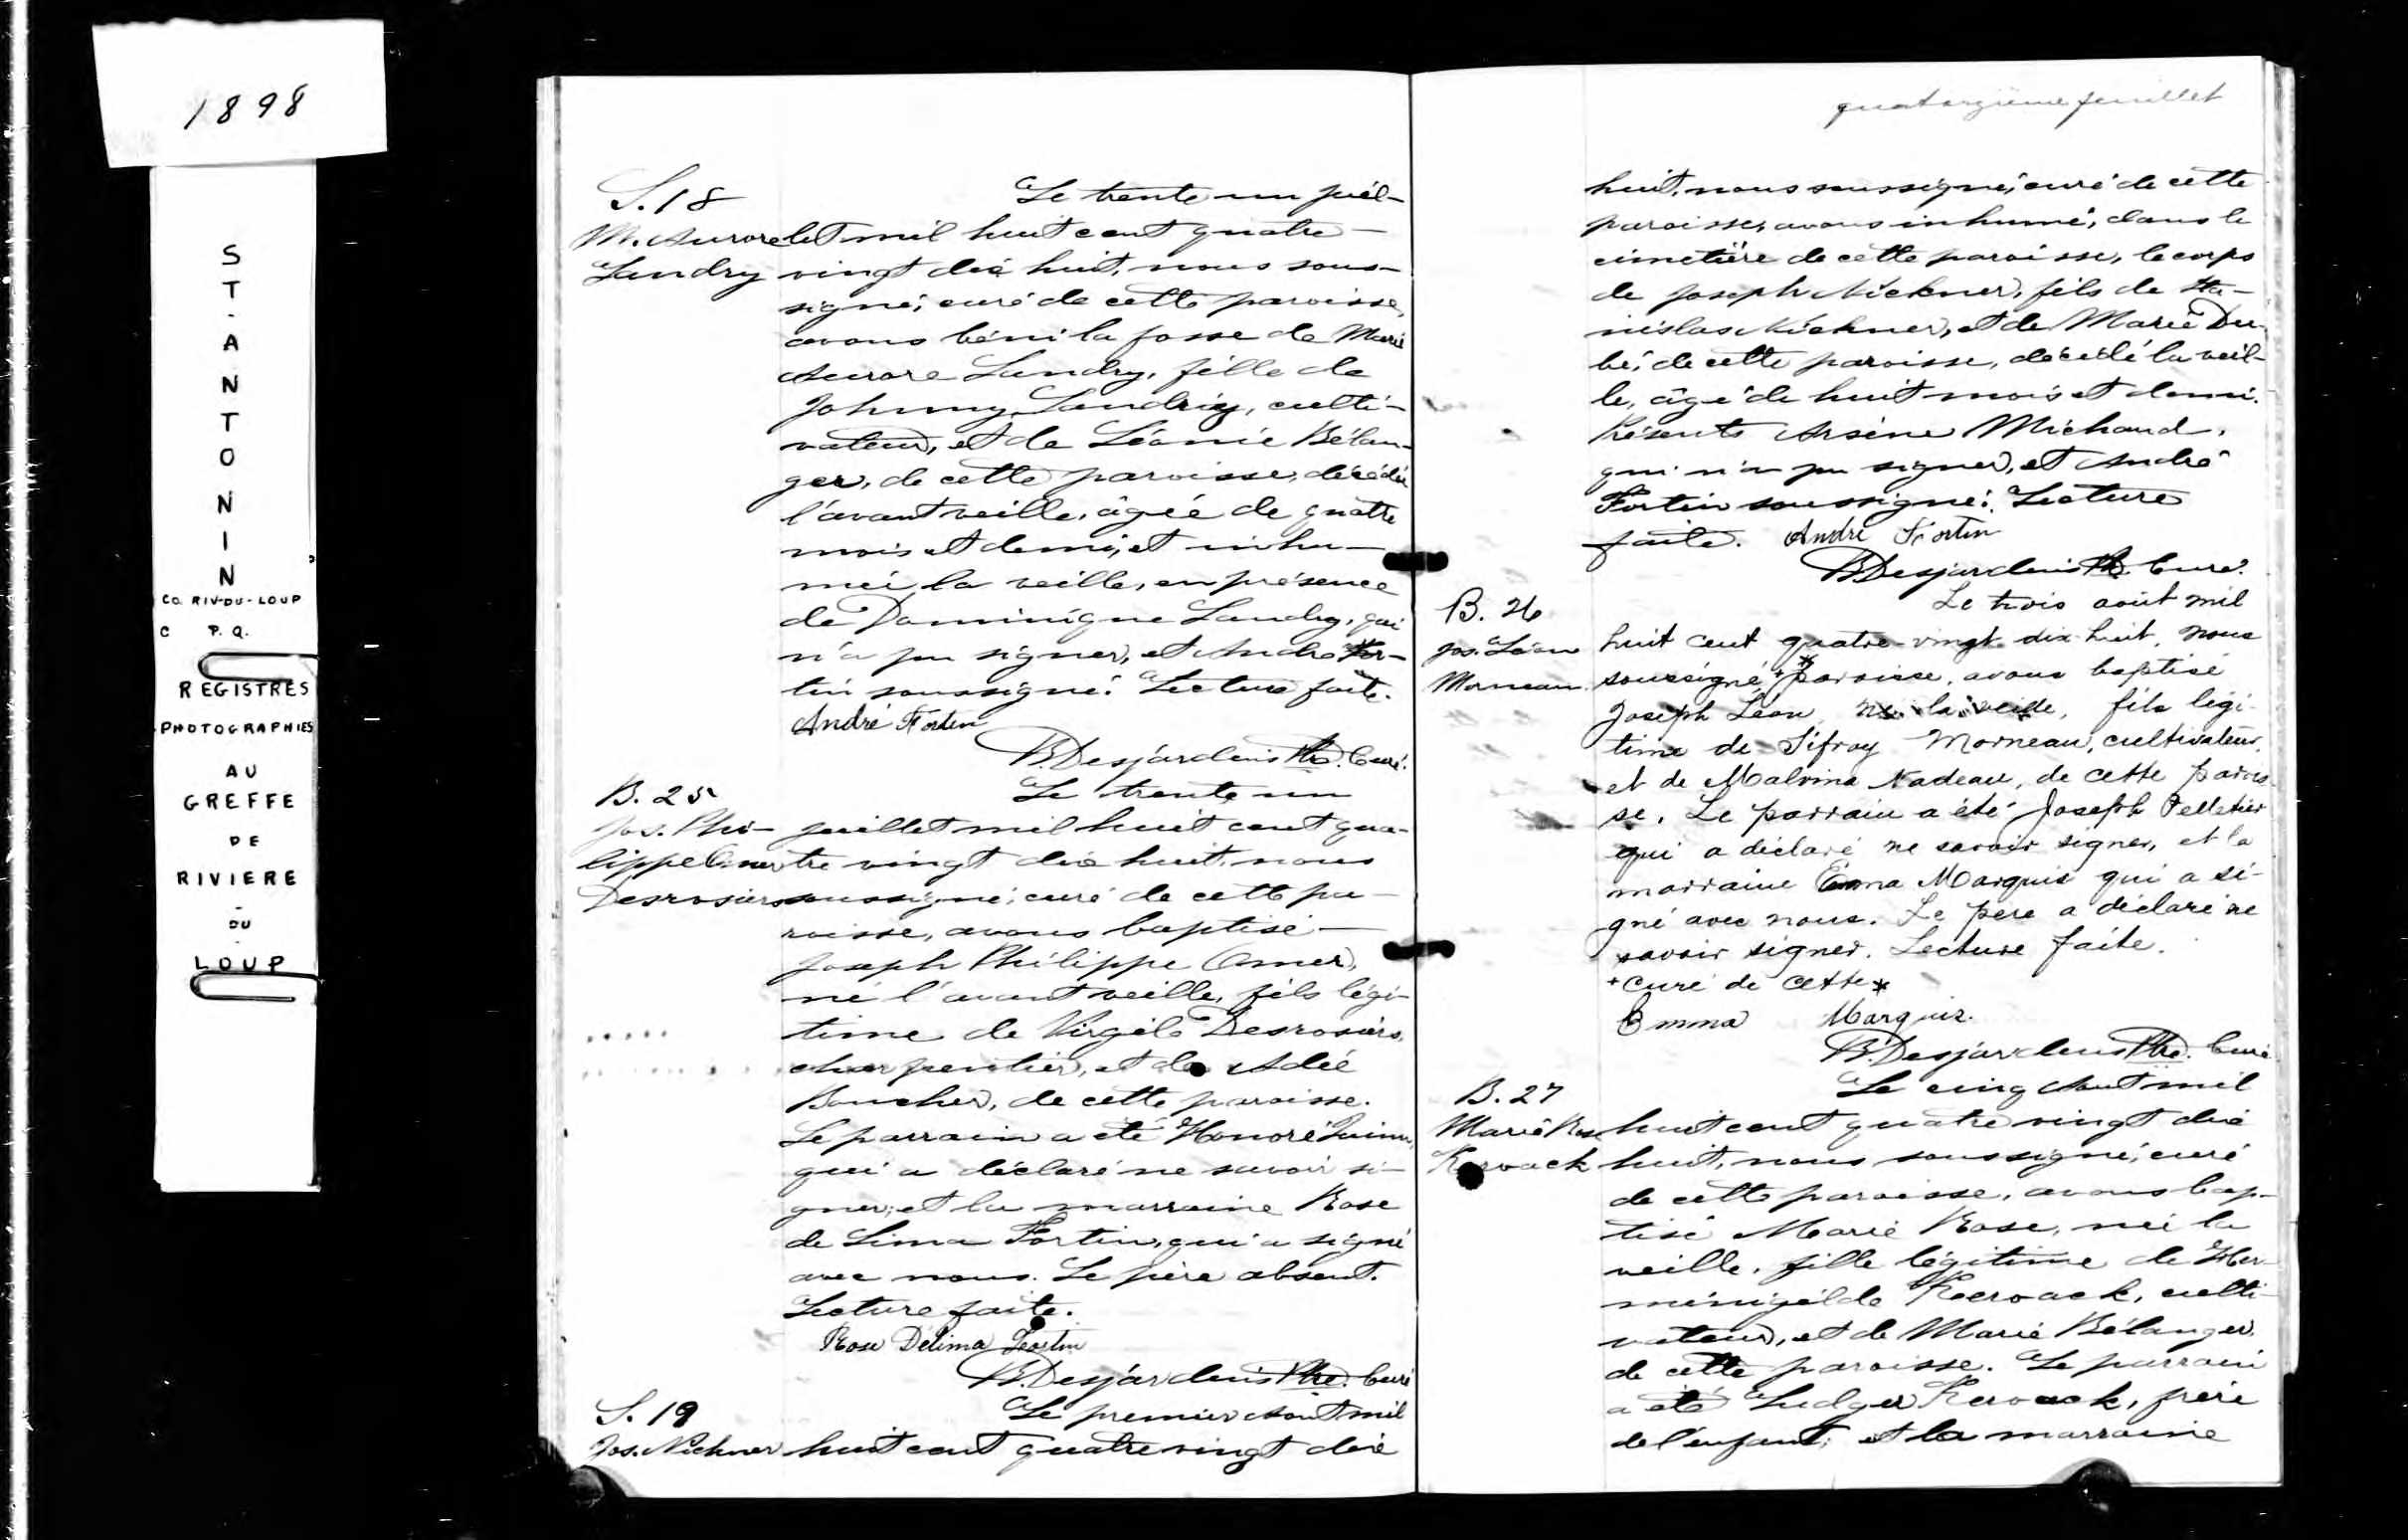 1898
ST-ANTONIN
CO. RIV-DU-LOUP
C P.Q.
REGISTRES
PHOTOGRAPHIES
AU
GREFFE
DE
RIVIERE
-
DU
-
LOUP
S. 18
M. Aurore
Landry
Le trente un juil-
let mil huit cent quatre-
vingt dix huit, nous sous-
signé, curé de cette paroisse,
avons béni la fosse de Marie
Aurore Landry, fille de
Johnny Landry, culti-
vateur, et de Léonie Bélan-
ger, de cette paroisse, décédée
l'avant veille, âgée de quatre
mois et demi, et inhu-
mée la veille, en présence
de Dominique Landry, qui
n'a pu signer, et André For-
tin soussigné. Lecture faite.
André Fortin
B. Desjardins Ptre. Curé.
B. 25
Jos. Phi-
lippe Omer
Desrosiers
Le trente un
juillet mil huit cent qua-
tre vingt dix huit, nous
soussigné, curé de cette pa-
roisse, avons baptisé
Joseph Philippe Omer,
né l'avant veille, fils légi-
time de Virgile Desrosiers,
charpentier, et de Adée
Boucher, de cette paroisse.
Le parrain a été Honoré
qui a déclaré ne savoir si-
gner, et la marraine Rose
de Lima Fortin, qui a signé
avec nous. Le père absent.
Lecture faite.
Rose Délima Fortin
B. Desjardins Ptre. Curé
S. 19
Jos. Nickner
Le premier Août mil
huit cent quatre vingt dix
quatorzième feuillet
huit, nous soussigné, curé de cette
paroisse, avons inhumé, dans le
cimetière de cette paroisse, le corps
de Joseph Nickner, fils de Sta-
nislas Nickner, et de Marie Du-
bé, de cette paroisse, décédé la veil-
le, âgé de huit mois et demi.
Présents Arsène Michaud,
qui n'a pu signer, et André
Fortin soussigné. Lecture
faite. André Fortin
B. Desjardins Ptre. Curé.
B. 26
Jos. Léon
Morneau
Le trois août mil
huit cent quatre-vingt-dix-huit, nous
soussigné + * paroisse, avons baptisé
Joseph Léon né la veille, fils légi-
time de Sifroy Morneau, cultivateur,
et de Malvina Nadeau, de cette parois-
se. Le parrain a été Joseph Pelletier
qui a déclaré ne savoir signer, et la
marraine Emma Marquis qui a si-
gné avec nous. Le père a déclaré ne
savoir signer. Lecture faite.
+ curé de cette *
Emma Marquis.
B. Desjardins Ptre. Curé
B. 27
Marie Rose
Kerouack
Le cinq Août mil
huit cent quatre vingt dix
huit, nous soussigné, curé
de cette paroisse, avons bap-
tisé Marie Rose, née la
veille, fille légitime de Her-
ménigilde Kerouack, culti-
vateur, et de Marie Bélanger,
de cette paroisse. Le parrain
a été Ludger Kerouack, frère
de l'enfant, et la marraine